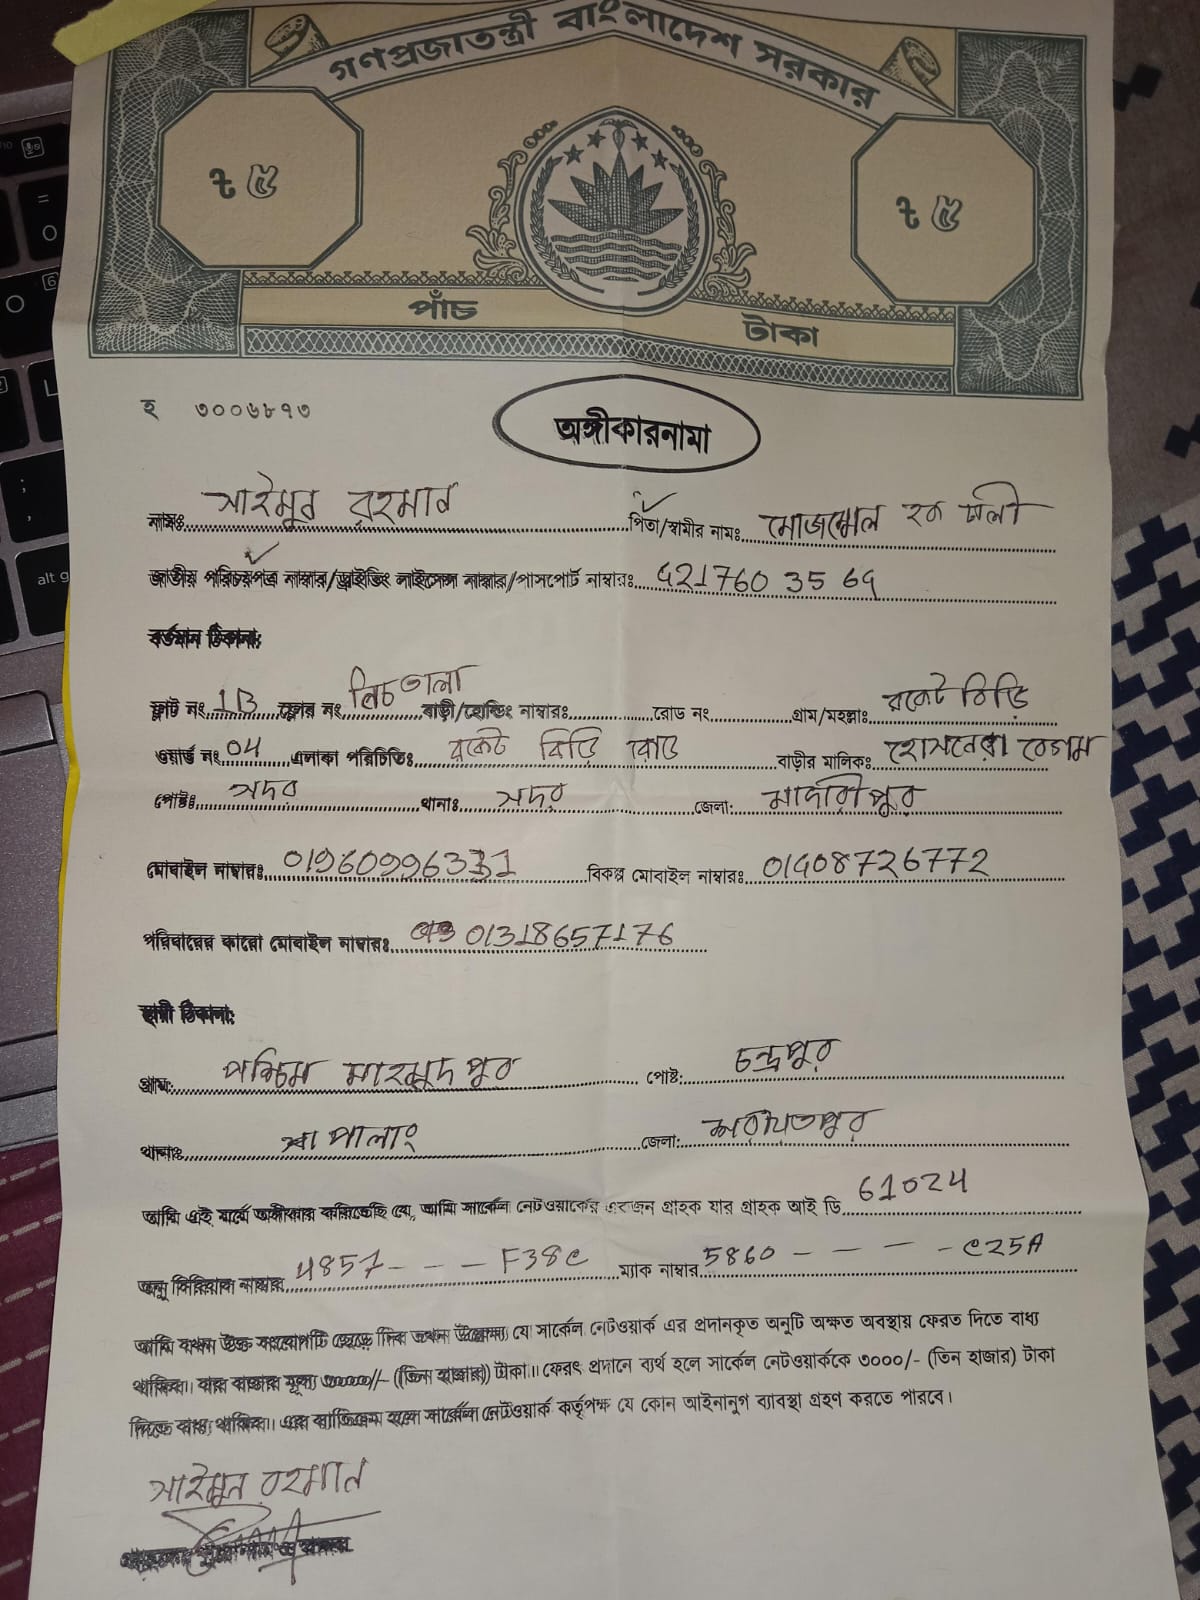 গণপ্রজাতন্ত্রী বাংলাদেশ সরকার
৳ ৫ ৳ ৫
পাঁচ টাকা
হ ৩০০৬৮৭৩
অঙ্গীকারনামা
নামঃ সাইমুন রহমান পিতা/স্বামীর নামঃ মোজাম্মেল হক ঢালী
জাতীয় পরিচয়পত্র নাম্বার/ড্রাইভিং লাইসেন্স নাম্বার/পাসপোর্ট নাম্বারঃ
বর্তমান ঠিকানা:
ফ্লাট নং 1B ফ্লোর নং নিচতালা বাড়ী/হোল্ডিং নাম্বারঃ রোড নং গ্রাম/মহল্লাঃ রকেট বিড়ি
ওয়ার্ড নং 04 এলাকা পরিচিতিঃ রকেট বিড়ি রোড বাড়ীর মালিকঃ হোসনেরা বেগম
পোষ্টঃ সদর থানাঃ সদর জেলা: মাদারীপুর
মোবাইল নাম্বারঃ বিকল্প মোবাইল নাম্বারঃ
পরিবারের কারো মোবাইল নাম্বারঃ 01318657176
স্থায়ী ঠিকানা:
গ্রাম: পশ্চিম মাহমুদপুর পোষ্ট: চন্দ্রপুর
থানাঃ পালাং জেলা: শরীয়তপুর
আমি এই মর্মে অঙ্গীকার করিতেছি যে, আমি সার্কেল নেটওয়ার্কের একজন গ্রাহক যার গ্রাহক আই ডি 61024
অনু সিরিয়াল নাম্বার 4857- - - F38C ম্যাক নাম্বার 5860 - - - - C25A
আমি যখন উক্ত সংযোগটি ছেড়ে দিব তখন উল্লেখ্য যে সার্কেল নেটওয়ার্ক এর প্রদানকৃত অনুটি অক্ষত অবস্থায় ফেরত দিতে বাধ্য
থাকিব। যার বাজার মূল্য ৩০০০/- (তিন হাজার) টাকা। ফেরৎ প্রদানে ব্যর্থ হলে সার্কেল নেটওয়ার্ককে ৩০০০/- (তিন হাজার) টাকা
দিতে বাধ্য থাকিব। এর ব্যতিক্রম হলে সার্কেল নেটওয়ার্ক কর্তৃপক্ষ যে কোন আইনানুগ ব্যাবস্থা গ্রহণ করতে পারবে।
সাইমুন রহমান